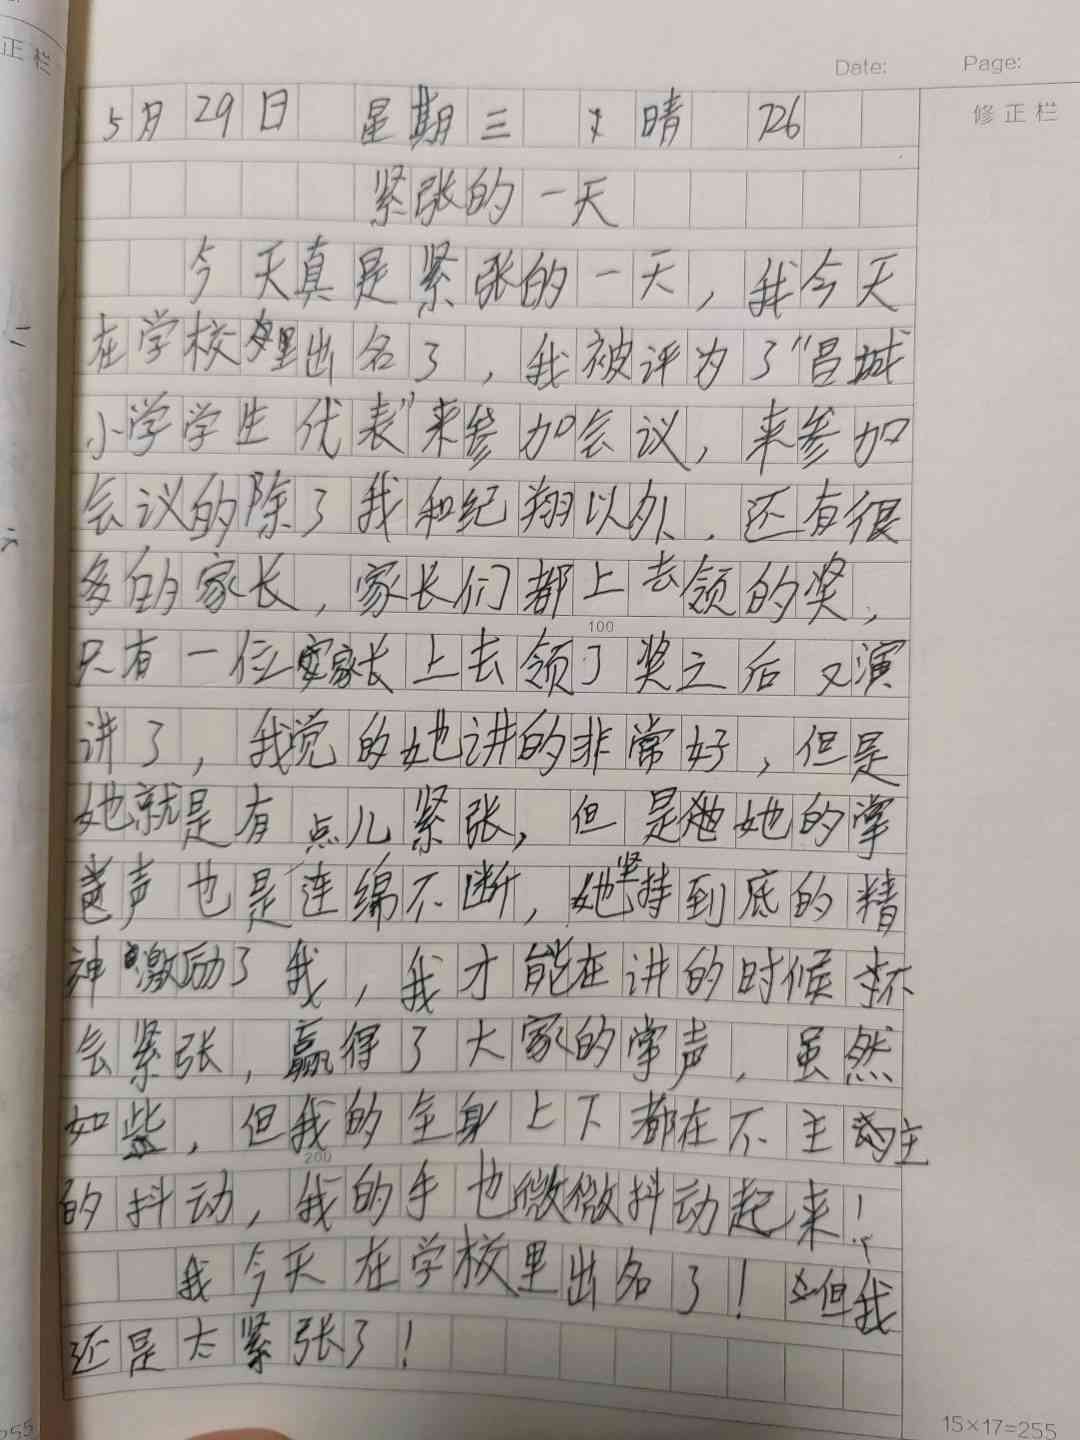 正栏
Date: Page:
修正栏
5月29日 星期三 晴 726
紧张的一天
今天真是紧张的一天，我今天
在学校里出名了，我被评为了“吕城
小学学生代表”来参加会议，来参加
会议的除了我和纪翔以外．还有很
多的家长，家长们都上去领的奖，
只有一位家长上去领了奖之后又演
100
讲了，我觉的她讲的非常好，但是
她就是有点儿紧张，但是她的掌
声也是连绵不断，她坚持到底的精
神激励了我，我才能在讲的时候不
会紧张，赢得了大家的掌声，虽然
如些，但我的全身上下都在不主主
200
的抖动，我的手也微微抖动起来！
我今天在学校里出名了！但我
还是太紧张了！
15×17=255
255